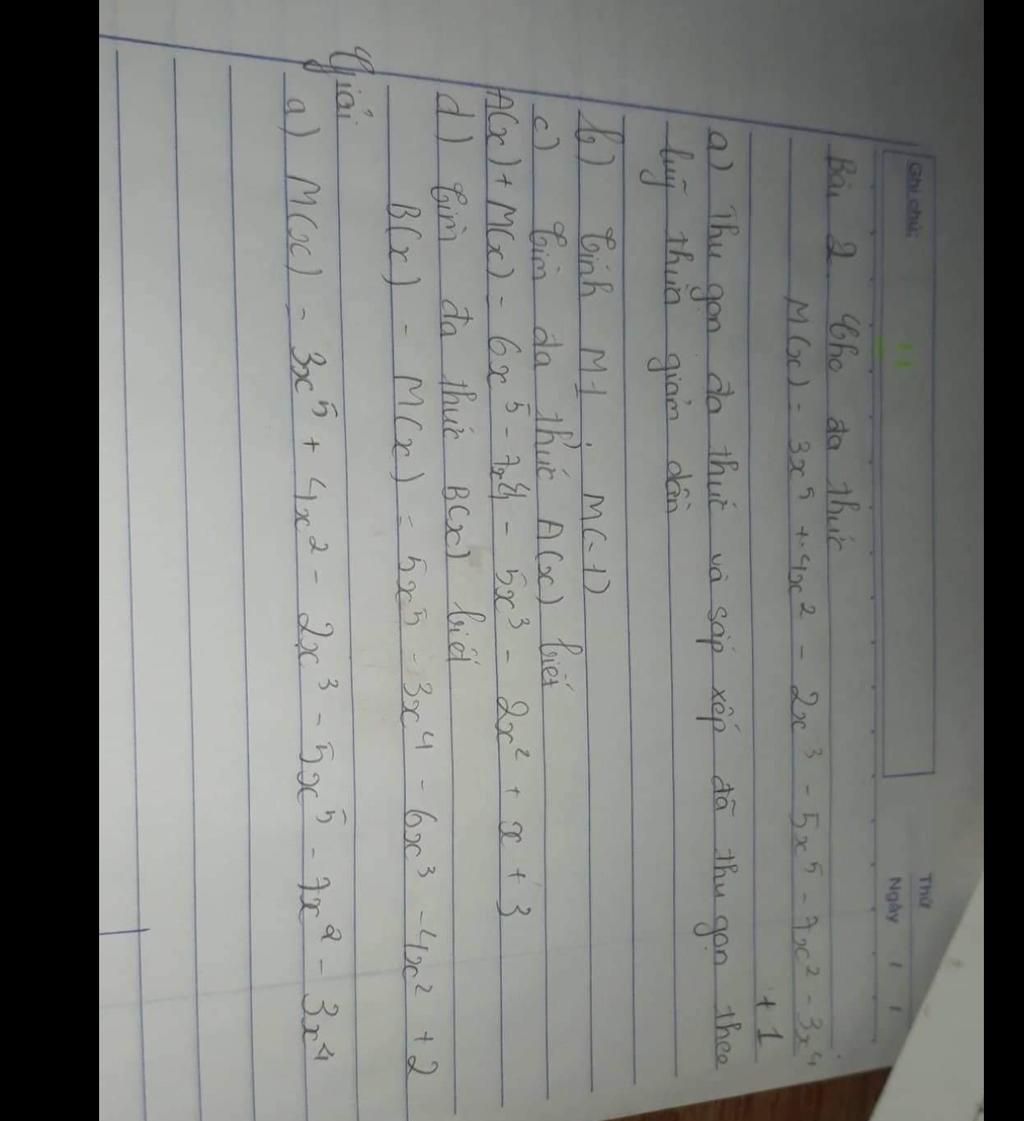 Ghi chú:
Thứ
Ngày / /
11
Bài 2 Cho đa thức
M(x) = 3x⁵ + 4x² - 2x³ - 5x⁵ - 7x² - 3x⁴
+ 1
a) Thu gọn đa thức và sắp xếp đã thu gọn theo
luỹ thừa giảm dần
b) Tính M1 ; M(-1)
c) Tìm đa thức A(x) biết
A(x) + M(x) = 6x⁵ - 7x⁴ - 5x³ - 2x² + x + 3
d) Tìm đa thức B(x) biết
B(x) - M(x) = 5x⁵ - 3x⁴ - 6x³ - 4x² + 2
Giải
a) M(x) = 3x⁵ + 4x² - 2x³ - 5x⁵ - 7x² - 3x⁴